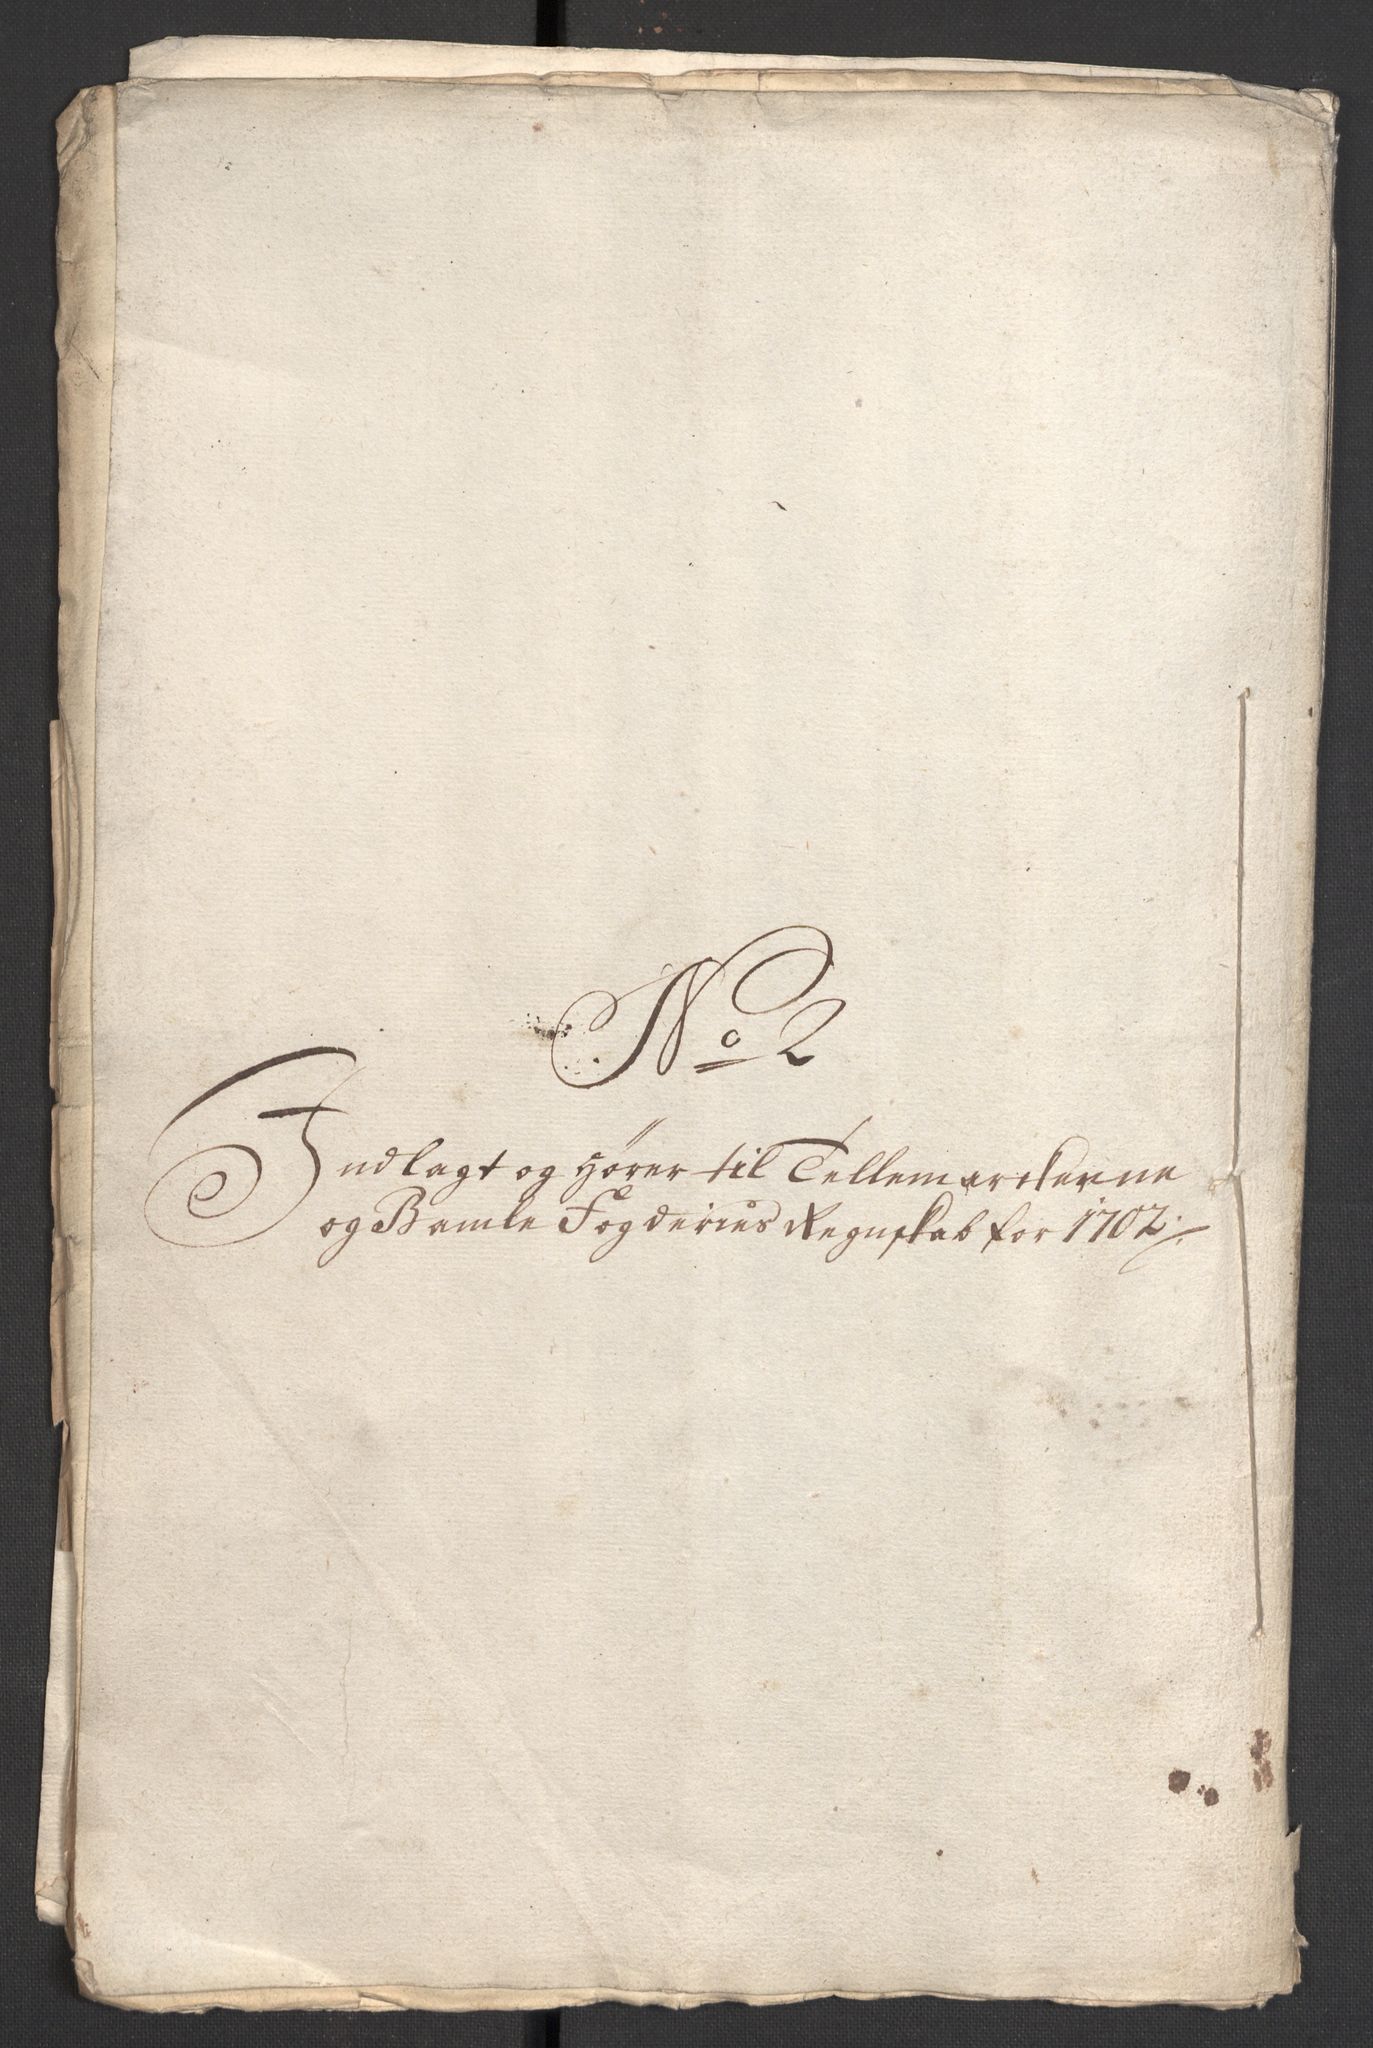 No 2
Indlagt og Hører til Tellemarckerne
og Bamle Fogderies Regnskab for 1702